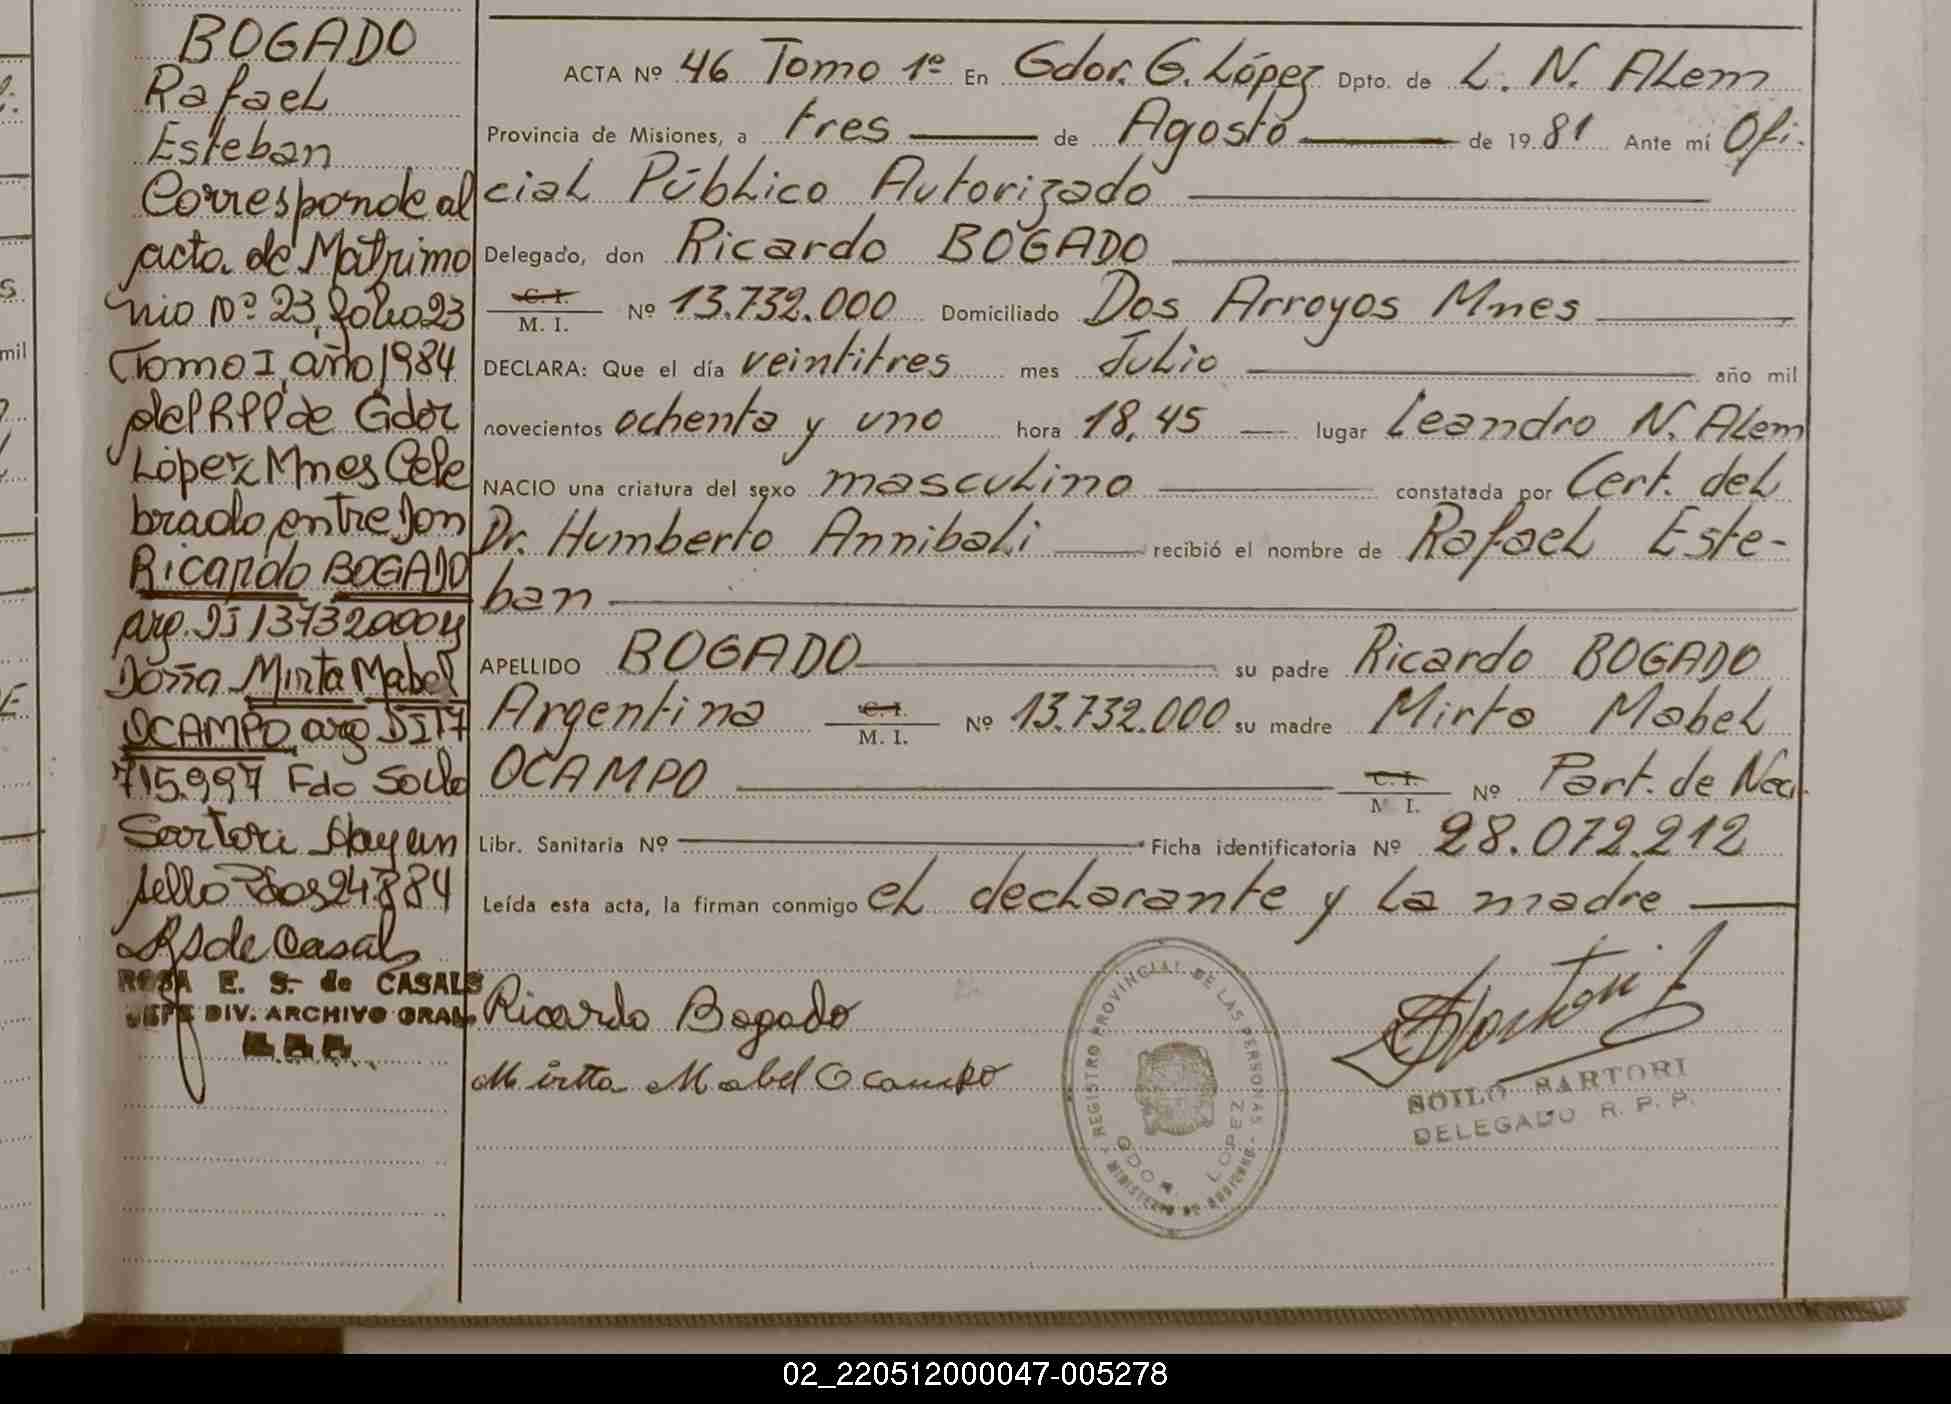 BOGADO
Rafael
Esteban
Corresponde al
acta de Matrimo
nio Nº 23, folio 23
Tomo I, año 1984
del RPP de Gdor
López Mnes Cele
brado entre Don
Ricardo BOGADO
arg. DI 13732000 y
Doña Mirta Mabel
OCAMPO arg DI 17
715.997 Fdo Soilo
Sartori Hay un
sello Pdos 24884
RS de Casals
ROSA E. S. de CASALS
JEFE DIV. ARCHIVO GRAL.
ACTA Nº 46 Tomo 1º En Gdor. G. López Dpto. de L. N. ALem
Provincia de Misiones, a tres de Agosto de 1981 Ante mí Ofi-
cial Público Autorizado
Delegado, don Ricardo BOGADO
C. I.
M. I. Nº 13.732.000 Domiciliado Dos Arroyos Mnes
DECLARA: Que el día veintitres mes Julio año mil
novecientos ochenta y uno hora 18,45 lugar Leandro N. ALem
NACIO una criatura del sexo masculino constatada por Cert. del
Dr. Humberto Annibali recibió el nombre de Rafael Este-
ban
APELLIDO BOGADO su padre Ricardo BOGADO
Argentina C. I. M. I. Nº 13.732.000 su madre Mirta Mabel
OCAMPO C. I. M. I. Nº Part. de Nac.
Libr. Sanitaria Nº Ficha identificatoria Nº 28.072.212
Leída esta acta, la firman conmigo el declarante y la madre
Ricardo Bogado
Mirta Mabel Ocampo
REGISTRO PROVINCIAL DE LAS PERSONAS
MINISTERIO DE GOBIERNO
GDOR. LOPEZ
Sartori
SOILO SARTORI
DELEGADO R. P. P.
02_220512000047-005278